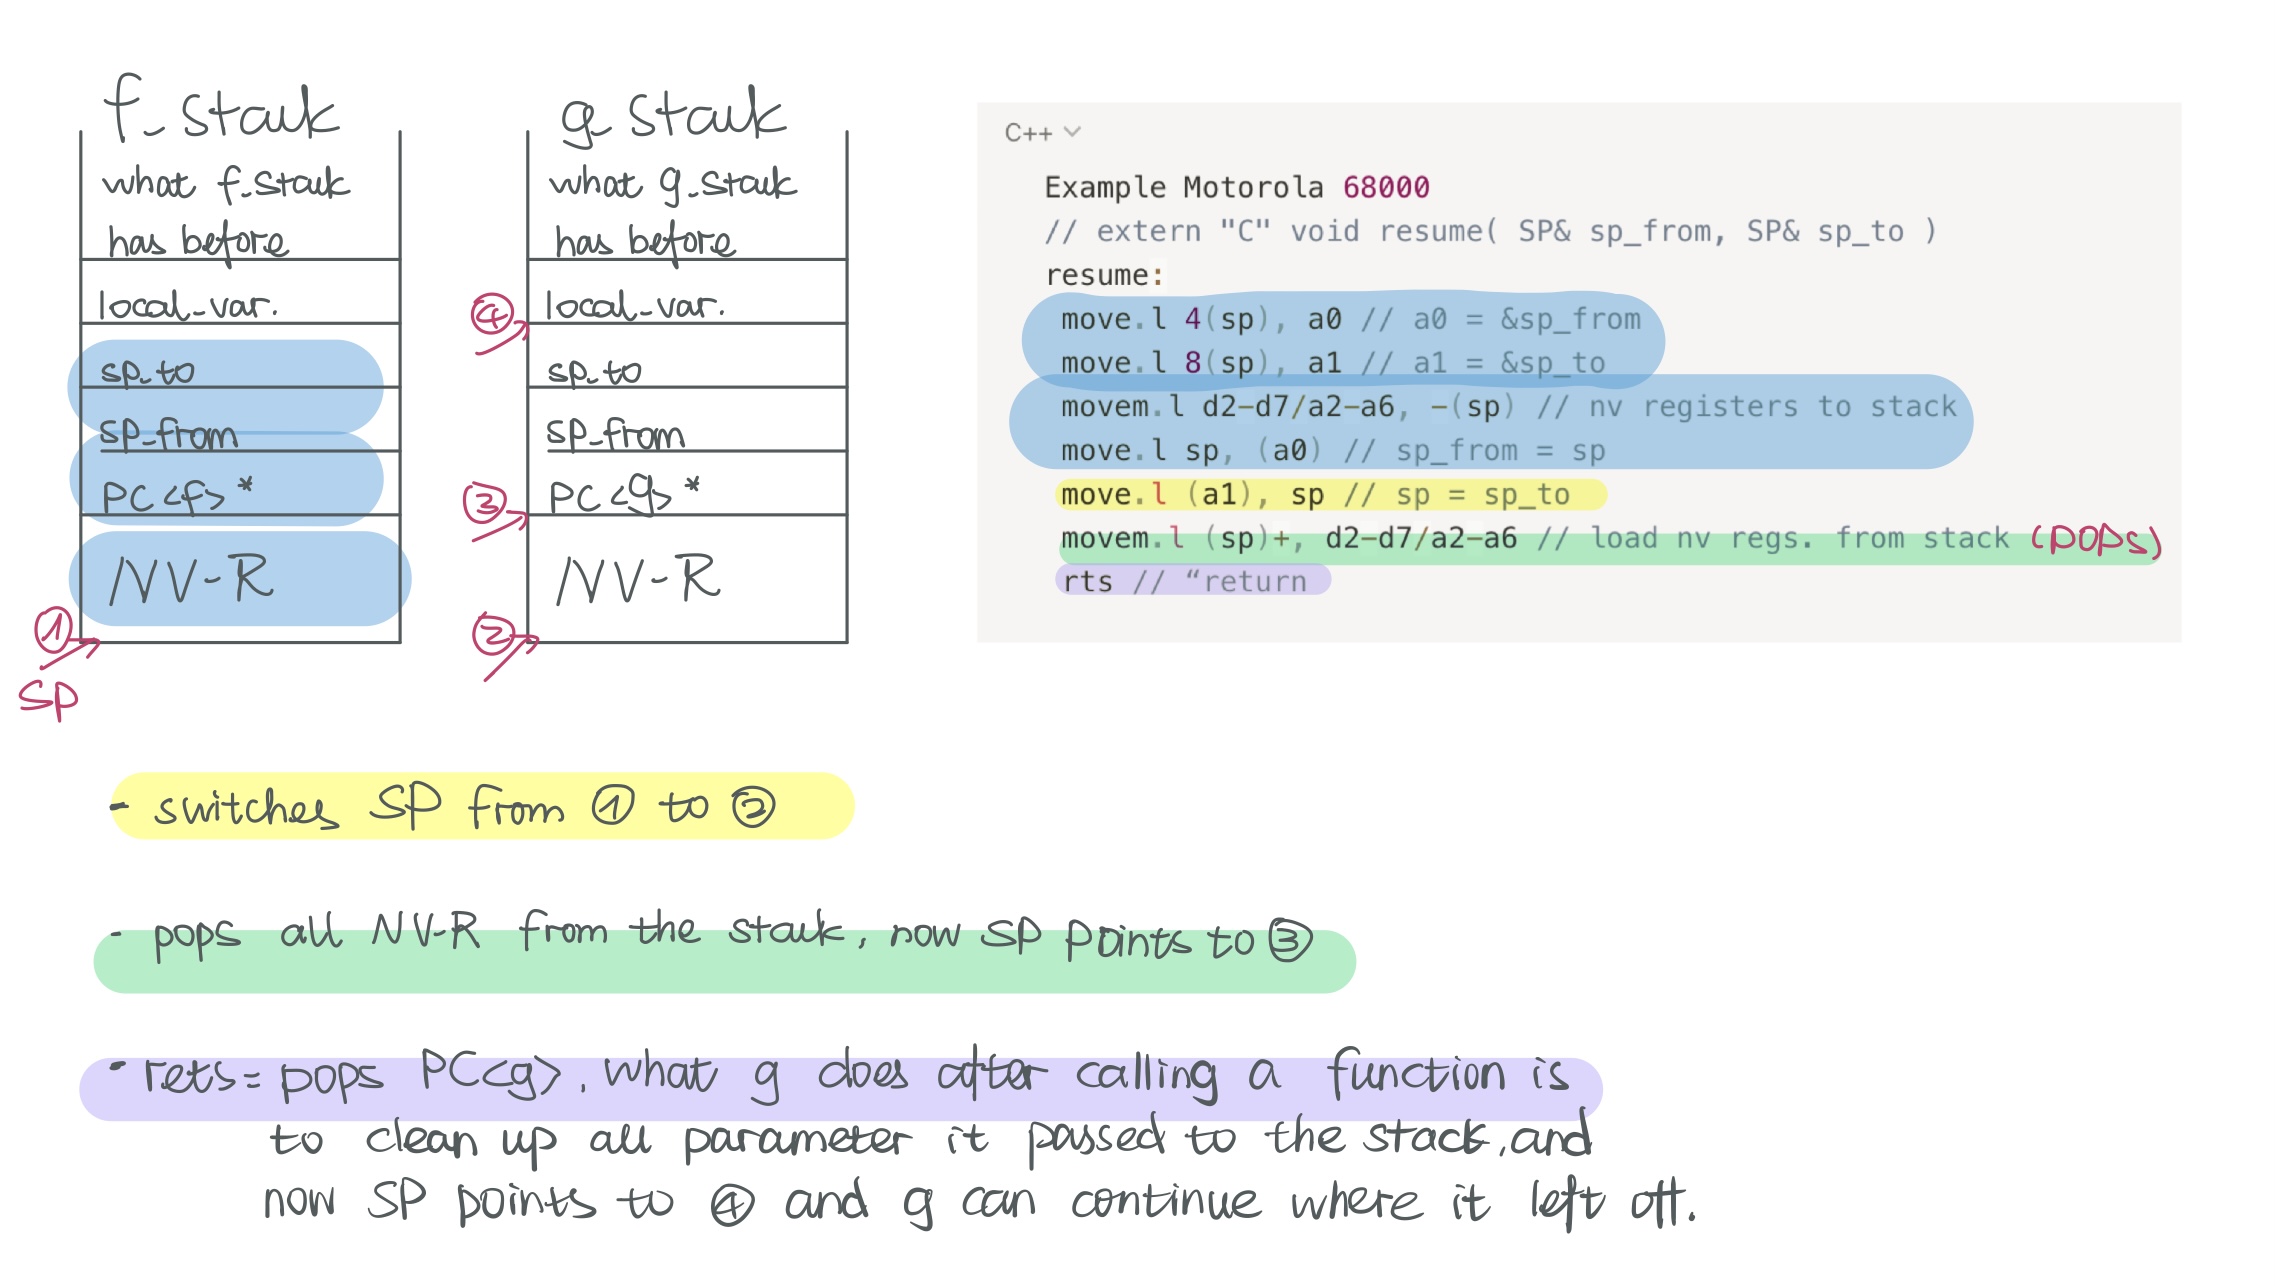 f_stack
what f_stack
has before
local_var.
sp_to
sp_from
PC<f>*
NV-R
① SP
g_stack
what g_stack
has before
④ local_var.
sp_to
sp_from
③ PC<g>*
NV-R
②
C++
Example Motorola 68000
// extern "C" void resume( SP& sp_from, SP& sp_to )
resume:
move.l 4(sp), a0 // a0 = &sp_from
move.l 8(sp), a1 // a1 = &sp_to
movem.l d2-d7/a2-a6, -(sp) // nv registers to stack
move.l sp, (a0) // sp_from = sp
move.l (a1), sp // sp = sp_to
movem.l (sp)+, d2-d7/a2-a6 // load nv regs. from stack (POPs)
rts // “return
- switches SP from ① to ②
- pops all NV-R from the stack, now SP points to ③
- rets = pops PC<g>, what g does after calling a function is
to clean up all parameter it passed to the stack, and
now SP points to ④ and g can continue where it left off.